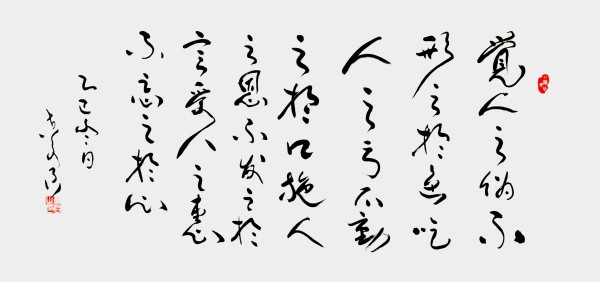 覺人之偽不
形之於色吃
人之亏不動
之於口施人
之恩不发之於
言受人之惠
不忘之於心
乙巳冬日